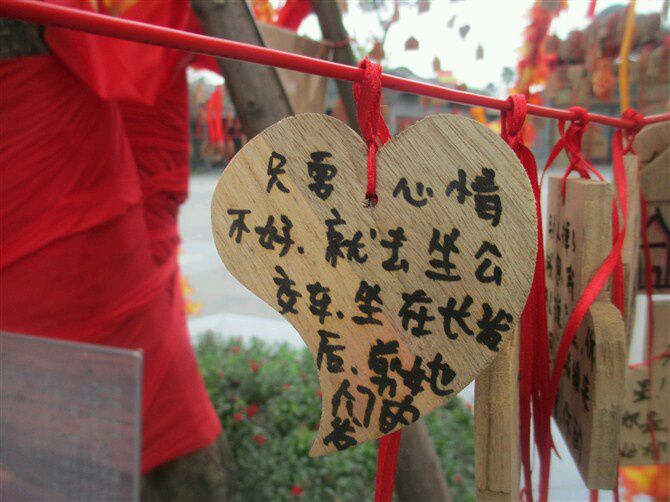 只要 心情
不好.就去坐公
交车.坐在长发
后.剪她
们的
发